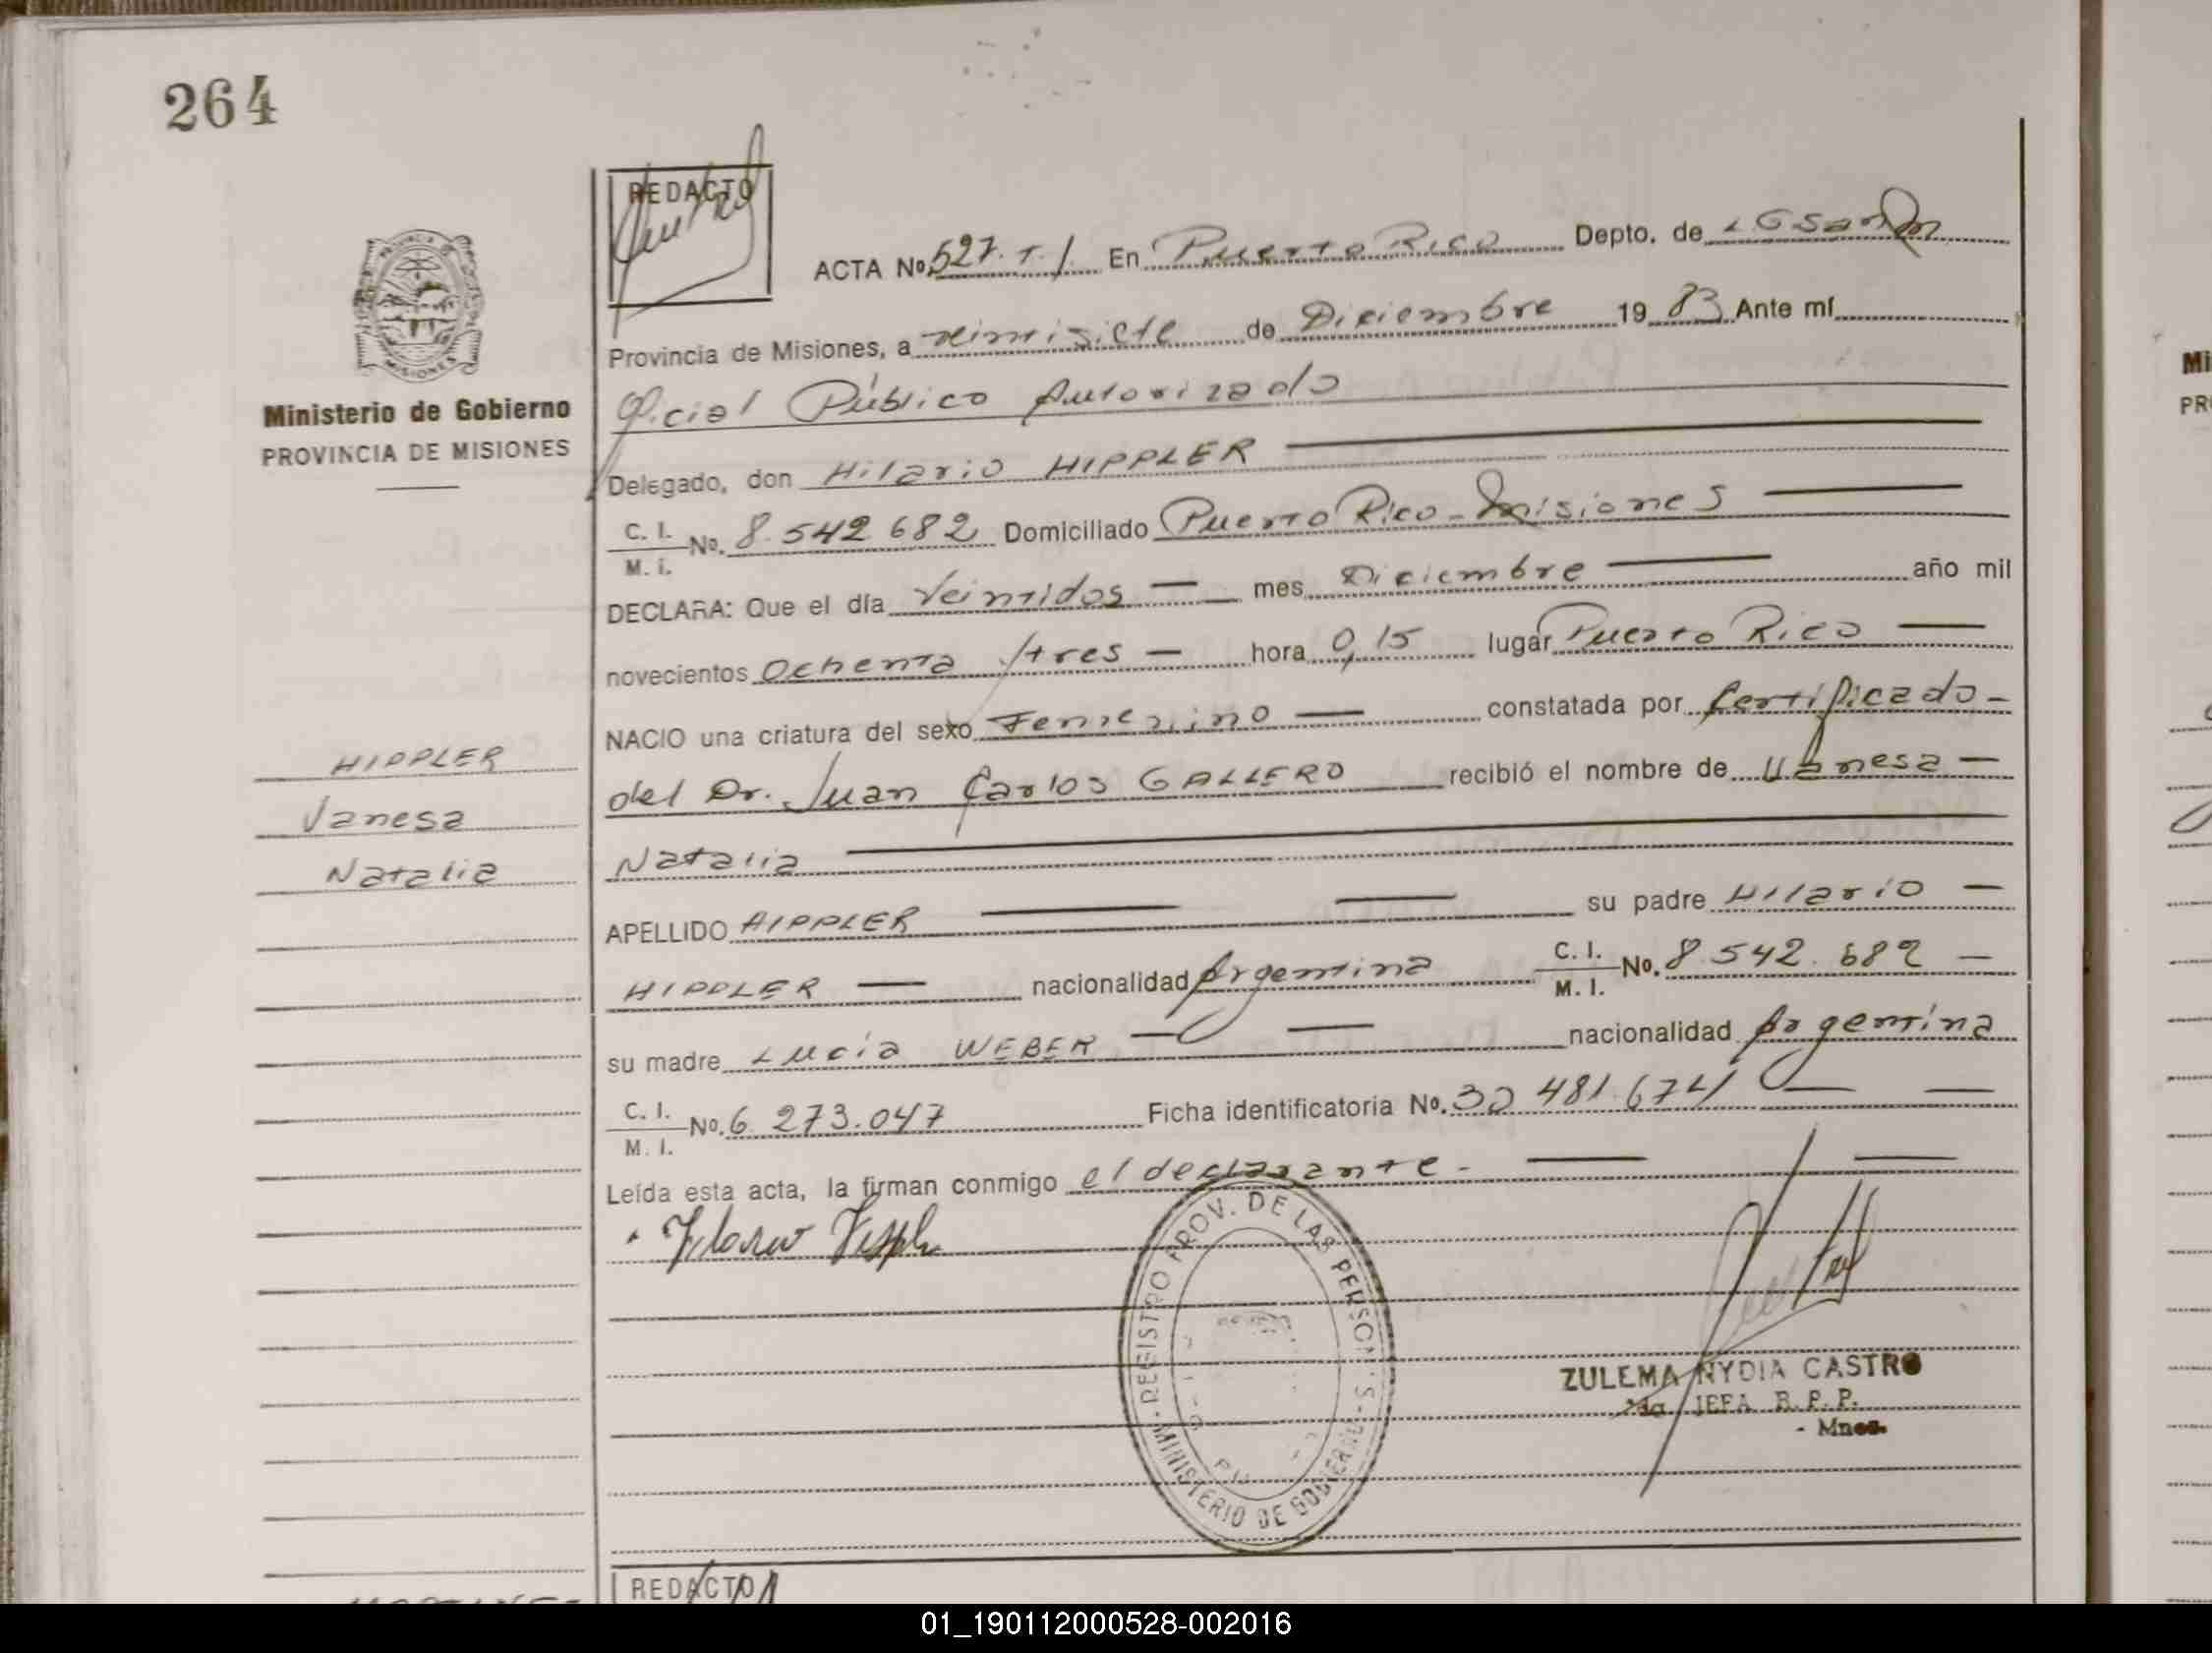 264
REDACTO
ACTA No. 527. T. I. En Puerto Rico Depto. de L G San Mn
Provincia de Misiones, a veintisiete de Diciembre 19 83 Ante mí
Oficial Público Autorizado
Ministerio de Gobierno
PROVINCIA DE MISIONES
Delegado, don Hilario HIPPLER
C. I. No. 8.542 682 Domiciliado Puerto Rico - Misiones
M. I.
DECLARA: Que el día Veintidos mes Diciembre año mil
novecientos Ochenta y tres hora 0,15 lugar Puerto Rico
NACIO una criatura del sexo Femenino constatada por Certificado
HIPPLER
del Dr. Juan Carlos GALLERO recibió el nombre de Vanesa
Vanesa
Natalia
Natalia
APELLIDO HIPPLER su padre Hilario
HIPPLER nacionalidad Argentina C. I. No. 8.542.682
M. I.
su madre Lucía WEBER nacionalidad Argentina
C. I. No. 6.273.047 Ficha identificatoria No. 30 481.674
M. I.
Leída esta acta, la firman conmigo el declarante.
REGISTRO PROV. DE LAS PERSONAS - MINISTERIO DE GOBIERNO
ZULEMA NYDIA CASTRO
2da JEFA R. P. P.
- Mnes.
REDACTO
Mi
PR
01_190112000528-002016